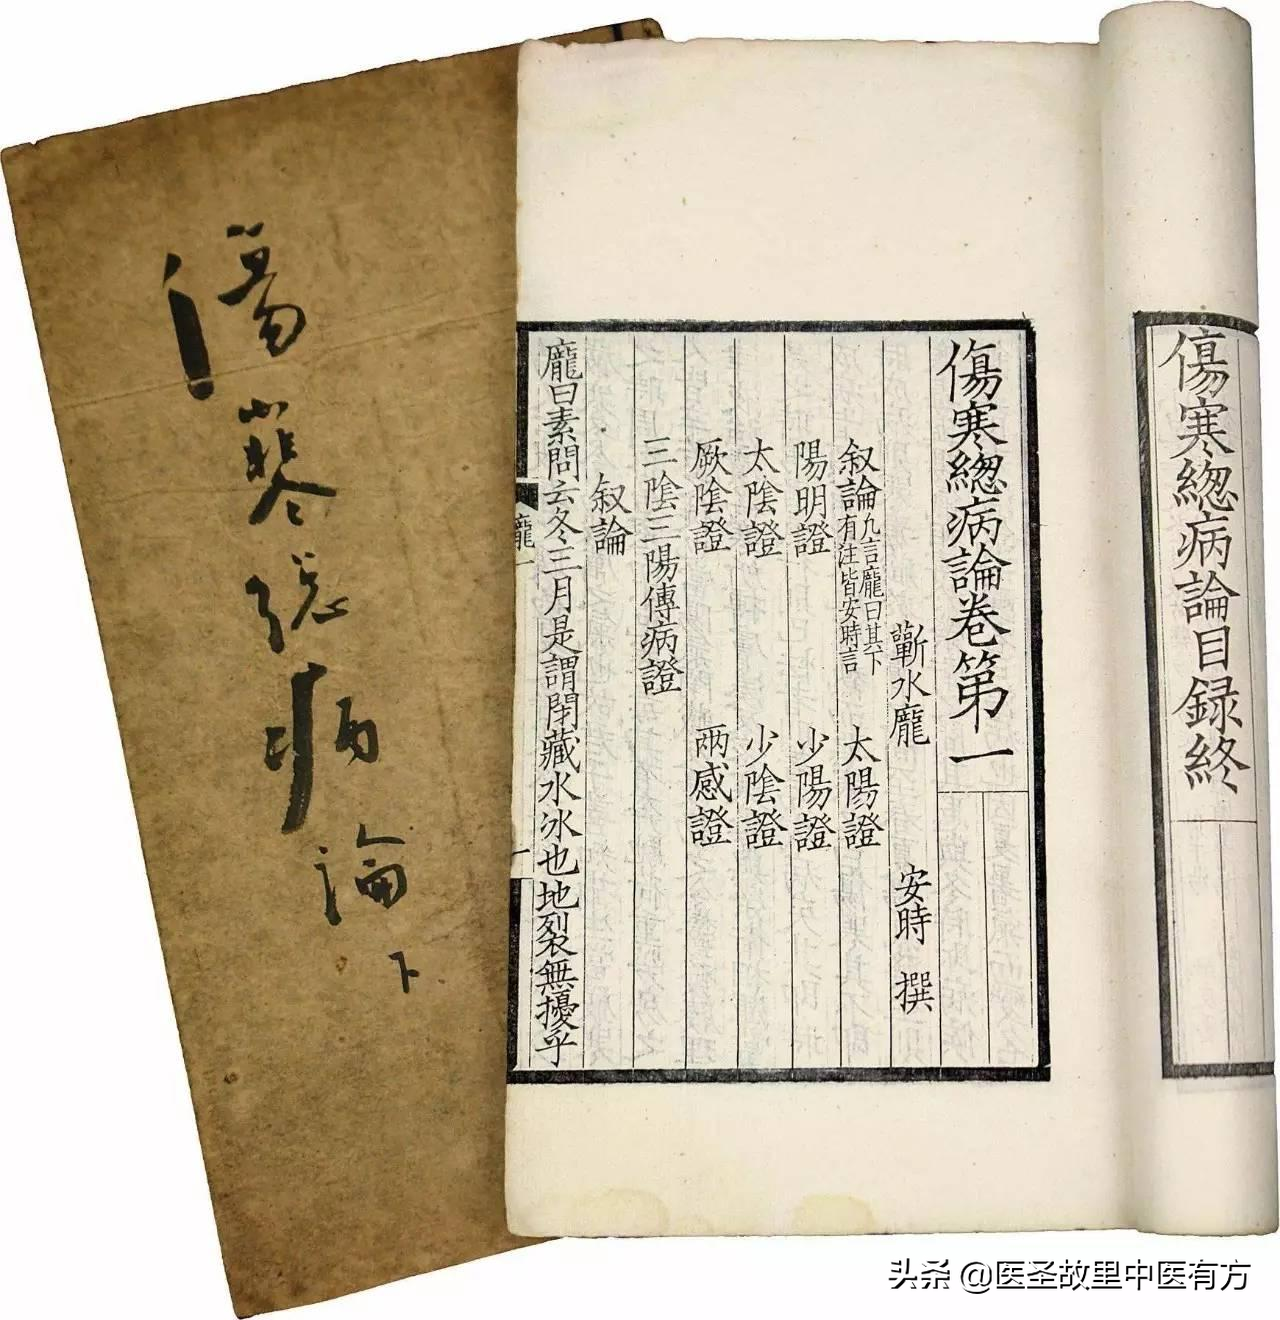 傷寒緫病論目録終
傷寒緫病論卷第一
蘄水龐 安時 撰
叙論 凡言龐曰其下 有注皆安時言 太陽證
陽明證 少陽證
太陰證 少陰證
厥陰證 兩感證
三陰三陽傳病證
叙論
龐曰素問云冬三月是謂閉藏水冰也地裂無擾乎
龐一
一
傷寒總病論 下
头条 @医圣故里中医有方